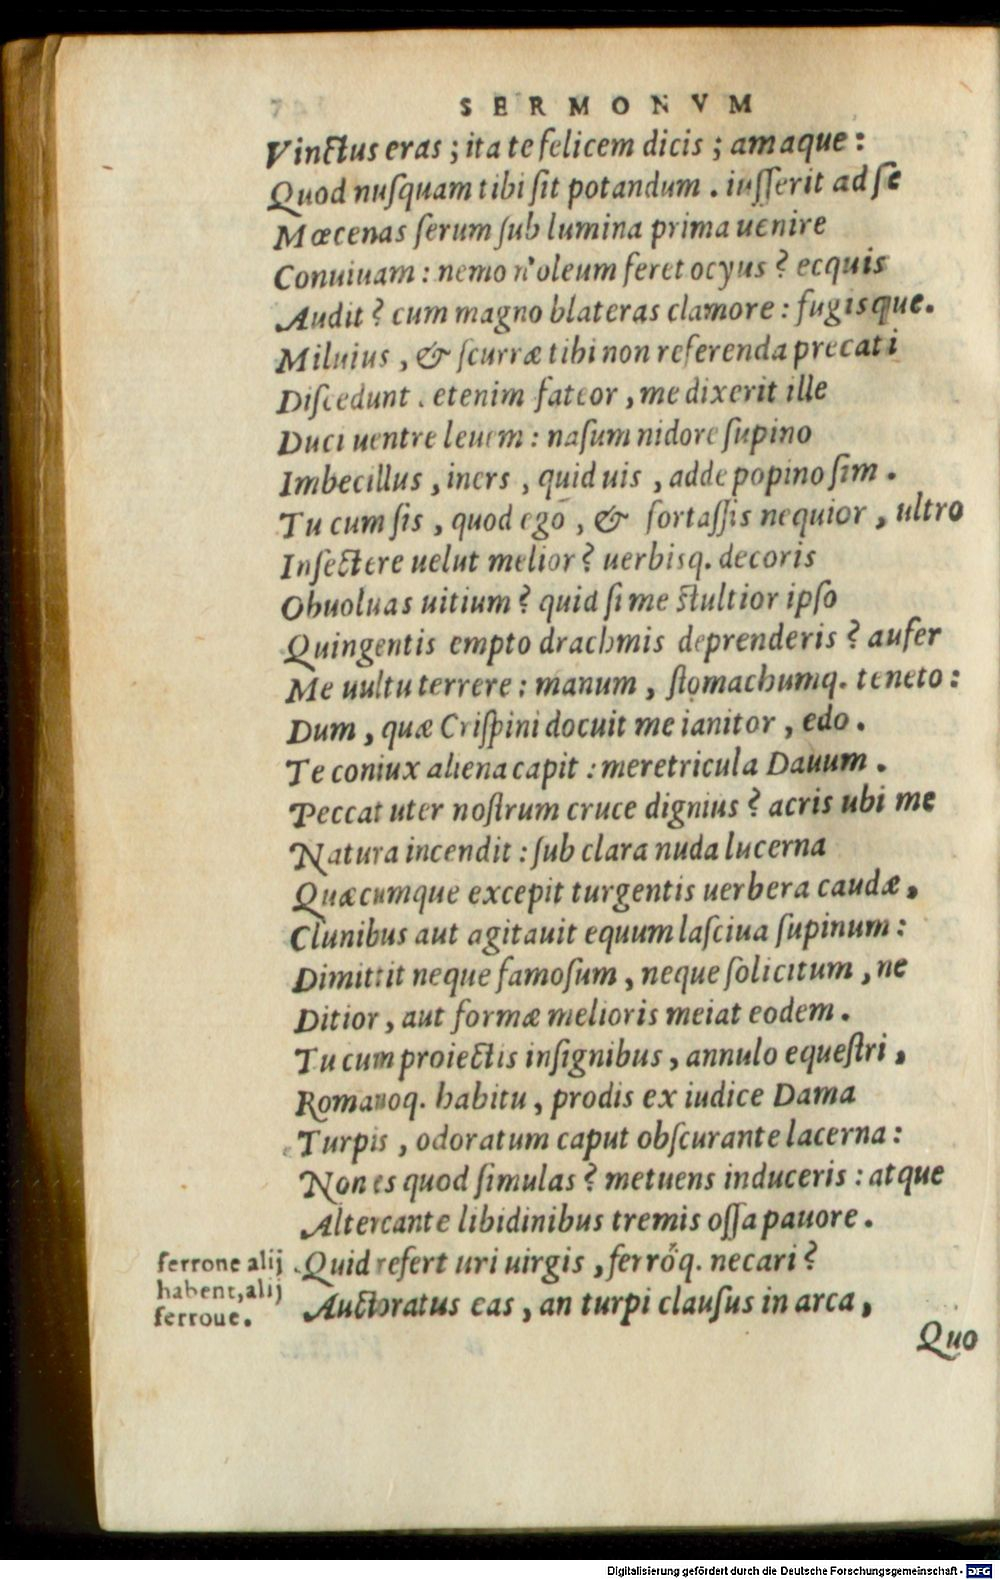 SERMONVM
Vinctus eras ; ita te felicem dicis ; amaque :
Quod nusquam tibi sit potandum . iusserit ad se
Mœcenas serum sub lumina prima uenire
Conuiuam : nemo n' oleum feret ocyus ? ecquis
Audit ? cum magno blateras clamore : fugisque.
Miluius , & scurræ tibi non referenda precati
Discedunt . etenim fateor , me dixerit ille
Duci uentre leuem : nasum nidore supino
Imbecillus , iners , quid uis , adde popino sim .
Tu cum sis , quod ego , & fortassis nequior , ultro
Insectere uelut melior ? uerbisq. decoris
Obuoluas uitium ? quid si me stultior ipso
Quingentis empto drachmis deprenderis ? aufer
Me uultu terrere : manum , stomachumq. teneto :
Dum , quæ Crispini docuit me ianitor , edo .
Te coniux aliena capit : meretricula Dauum .
Peccat uter nostrum cruce dignius ? acris ubi me
Natura incendit : sub clara nuda lucerna
Quæcumque excepit turgentis uerbera caudæ ,
Clunibus aut agitauit equum lasciua supinum :
Dimittit neque famosum , neque solicitum , ne
Ditior , aut formæ melioris meiat eodem .
Tu cum proiectis insignibus , annulo equestri ,
Romanoq. habitu , prodis ex iudice Dama
Turpis , odoratum caput obscurante lacerna :
Non es quod simulas ? metuens induceris : atque
Altercante libidinibus tremis ossa pauore .
Quid refert uri uirgis , ferróq. necari ?
Auctoratus eas , an turpi clausus in arca ,
Quo
ferrone alij
habent, alij
ferroue.
Digitalisierung gefördert durch die Deutsche Forschungsgemeinschaft - DFG